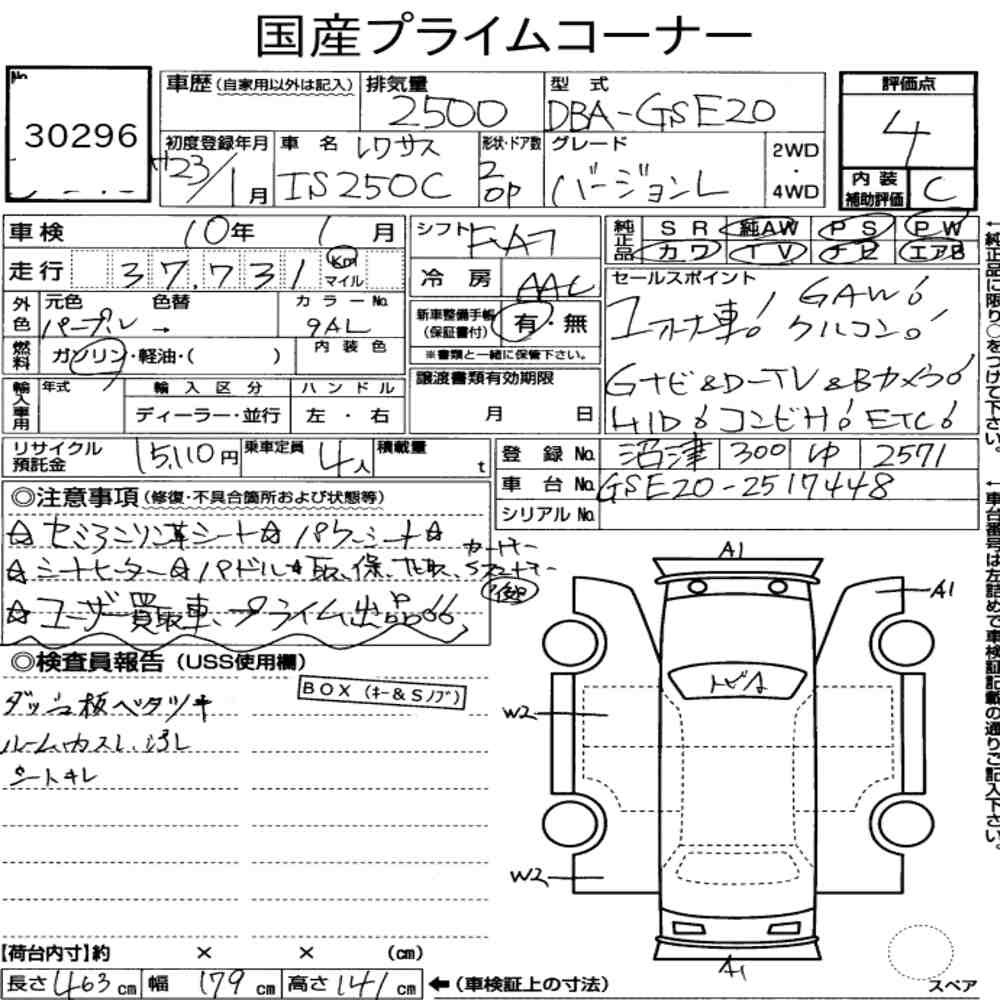 国産プライムコーナー
No.
30296
車歴 (自家用以外は記入) 排気量 2500
型式 DBA-GSE20
評価点 4
内装補助評価 C
初度登録年月 H23/1月
車名 レクサス
IS250C
形状・ドア数 2 OP
グレード バージョンL
2WD・4WD
車検 10年 1月
走行 37,731 Km マイル
シフト FA7
冷房 AAC
純正品 SR 純AW PS PW
カワ TV ナビ エアB
外色 元色 パープル → 色替
カラーNo. 9AL
燃料 ガソリン・軽油・( )
内装色
新車整備手帳 (保証書付) 有・無
※書類と一緒に保管下さい。
セールスポイント
1オーナ車! GAW!
クルコン!
Gナビ&D-TV&Bカメラ!
HID!コンビH!ETC!
輸入車用 年式 輸入区分 ハンドル
ディーラー・並行 左・右
譲渡書類有効期限
月 日
リサイクル預託金 15,110円
乗車定員 4人
積載量 t
登録No. 沼津 300 ゆ 2571
車台No. GSE20-2517448
シリアルNo.
◎注意事項 (修復・不具合箇所および状態等)
☆セミアニリン革シート☆パワーシート☆
☆シートヒーター☆パドル☆取、保、
☆ユーザー買取車、プライム出品
◎検査員報告 (USS使用欄)
BOX (キー&Sノブ)
ダッシュ板ベタツキ
ルーム内カスレ、汚レ
シートキレ
A1
A1
トビA
W2
W2
A1
【荷台内寸】約 × × (cm)
長さ 463 cm 幅 179 cm 高さ 141 cm ←(車検証上の寸法)
スペア
←純正品に限り○をつけて下さい。
←車台番号は左詰めで車検証記載の通りご記入下さい。